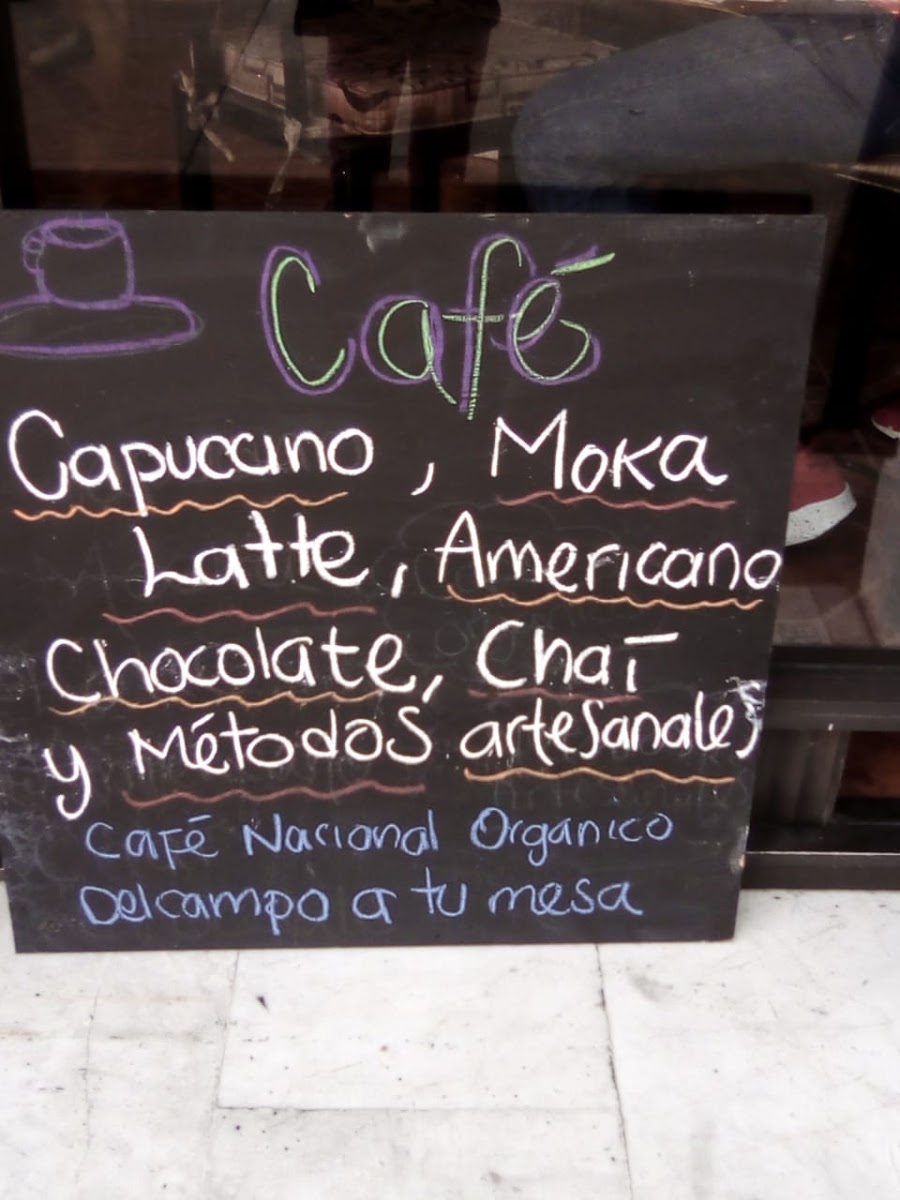 Café
Capuccino, Moka
Latte, Americano
Chocolate, Chai
y Métodos artesanales
Café Nacional Organico
Del campo a tu mesa